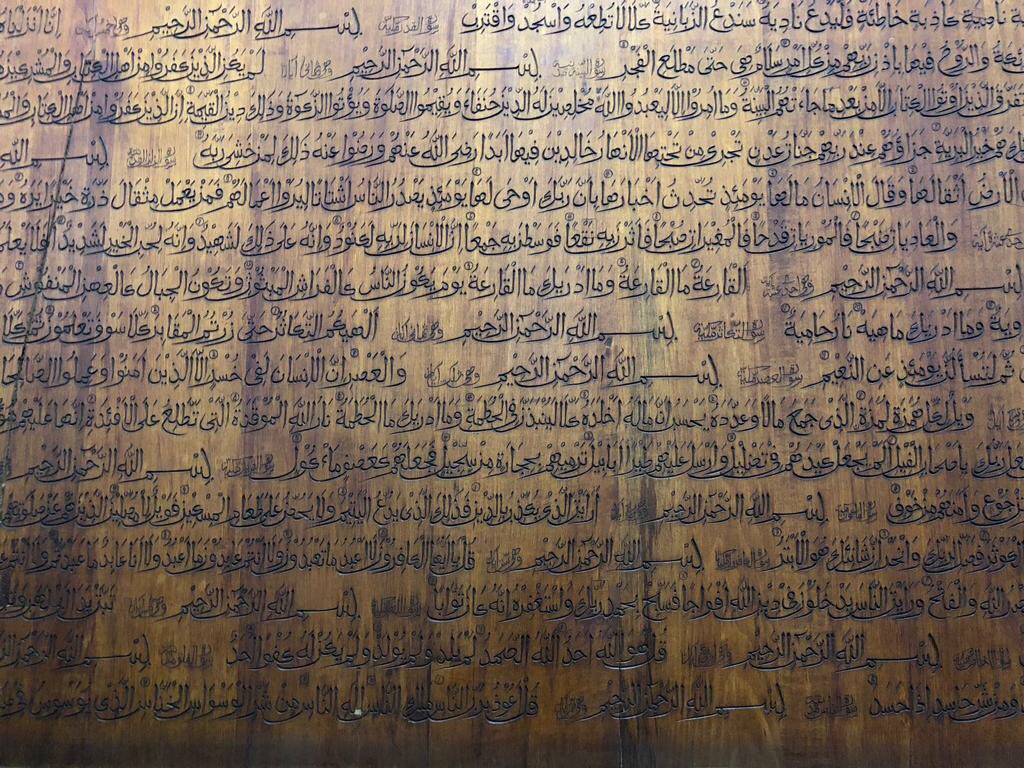 ناصية كاذبة خاطئة فليدع ناديه سندع الزبانية كلا لا تطعه واسجد واقترب سورة القدر بسم الله الرحمن الرحيم إنا أنزلناه
والروح فيها بإذن ربهم من كل أمر سلام هي حتى مطلع الفجر بسم الله الرحمن الرحيم لم يكن الذين كفروا من أهل الكتاب والمشركين
تفرق الذين أوتوا الكتاب إلا من بعد ما جاءتهم البينة وما أمروا إلا ليعبدوا الله مخلصين له الدين حنفاء ويقيموا الصلوة ويؤتوا الزكوة وذلك دين القيمة إن الذين كفروا من أهل الكتاب
هم خير البرية جزاؤهم عند ربهم جنات عدن تجري من تحتها الأنهار خالدين فيها أبدا رضي الله عنهم ورضوا عنه ذلك لمن خشي ربه بسم الله
الأرض أثقالها وقال الإنسان ما لها يومئذ تحدث أخبارها بأن ربك أوحى لها يومئذ يصدر الناس أشتاتا ليروا أعمالهم فمن يعمل مثقال ذرة خيرا يره
والعاديات ضبحا فالموريات قدحا فالمغيرات صبحا فأثرن به نقعا فوسطن به جمعا إن الإنسان لربه لكنود وإنه على ذلك لشهيد وإنه لحب الخير لشديد أفلا يعلم
بسم الله الرحمن الرحيم القارعة ما القارعة وما أدريك ما القارعة يوم يكون الناس كالفراش المبثوث وتكون الجبال كالعهن المنفوش
وما أدريك ما هيه نار حامية بسم الله الرحمن الرحيم ألهيكم التكاثر حتى زرتم المقابر كلا سوف تعلمون ثم كلا
ثم لتسألن يومئذ عن النعيم سورة العصر بسم الله الرحمن الرحيم والعصر إن الإنسان لفي خسر إلا الذين آمنوا وعملوا الصالحات
ويل لكل همزة لمزة الذي جمع مالا وعدده يحسب أن ماله أخلده كلا لينبذن في الحطمة وما أدريك ما الحطمة نار الله الموقدة التي تطلع على الأفئدة إنها عليهم
فعل ربك بأصحاب الفيل ألم يجعل كيدهم في تضليل وأرسل عليهم طيرا أبابيل ترميهم بحجارة من سجيل فجعلهم كعصف مأكول بسم الله الرحمن الرحيم
جوع وآمنهم من خوف بسم الله الرحمن الرحيم أرأيت الذي يكذب بالدين فذلك الذي يدع اليتيم ولا يحض على طعام المسكين فويل للمصلين الذين هم عن صلوتهم
الكوثر فصل لربك وانحر إن شانئك هو الأبتر بسم الله الرحمن الرحيم قل يا أيها الكافرون لا أعبد ما تعبدون ولا أنتم عابدون ما أعبد ولا أنا عابد ما عبدتم ولا أنتم
نصر الله والفتح ورأيت الناس يدخلون في دين الله أفواجا فسبح بحمد ربك واستغفره إنه كان توابا بسم الله الرحمن الرحيم تبت يدا أبي لهب وتب
بسم الله الرحمن الرحيم قل هو الله أحد الله الصمد لم يلد ولم يولد ولم يكن له كفوا أحد بسم الله الرحمن الرحيم
ومن شر حاسد إذا حسد بسم الله الرحمن الرحيم قل أعوذ برب الناس ملك الناس إله الناس من شر الوسواس الخناس الذي يوسوس في